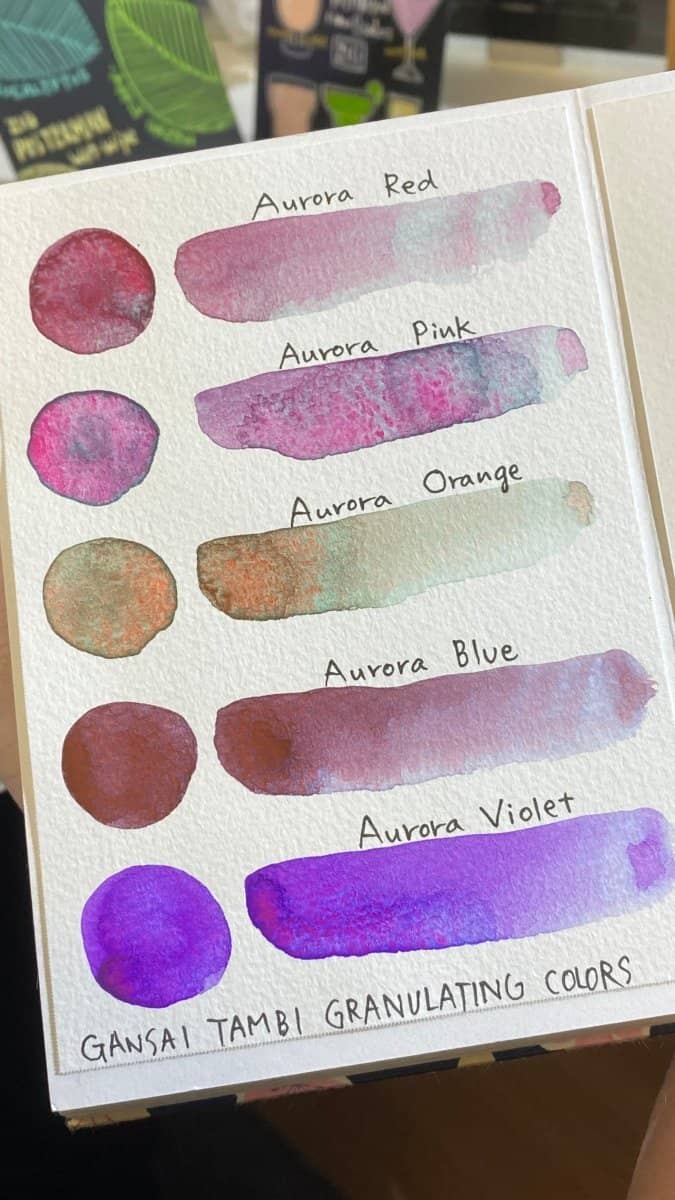 Aurora Red
Aurora Pink
Aurora Orange
Aurora Blue
Aurora Violet
GANSAI TAMBI GRANULATING COLORS